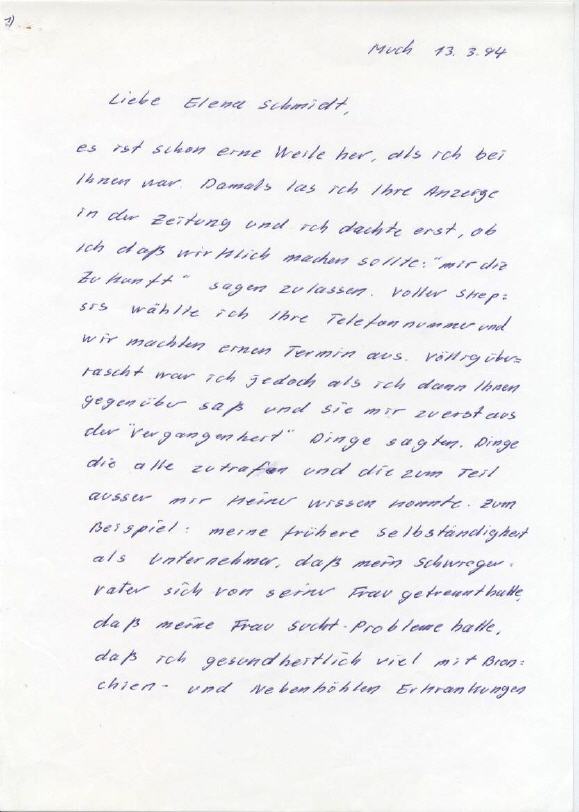 1)
Much 13.3.94
Liebe Elena Schmidt,
es ist schon eine Weile her, als ich bei
Ihnen war. Damals las ich Ihre Anzeige
in der Zeitung und ich dachte erst, ob
ich daß wirklich machen sollte: "mir die
Zukunft" sagen zulassen. Voller Skep=
sis wählte ich Ihre Telefonnummer und
wir machten einen Termin aus. Völlig über=
rascht war ich jedoch als ich dann Ihnen
gegenüber saß und sie mir zuerst aus
der "Vergangenheit" Dinge sagten. Dinge
die alle zutrafen und die zum Teil
ausser mir keiner wissen konnte. Zum
Beispiel: meine frühere Selbständigkeit
als Unternehmer, daß mein Schwieger-
vater sich von seiner Frau getrennt hatte,
daß meine Frau Sucht-Probleme hatte,
daß ich gesundheitlich viel mit Bron=
chien- und Nebenhöhlen Erkrankungen